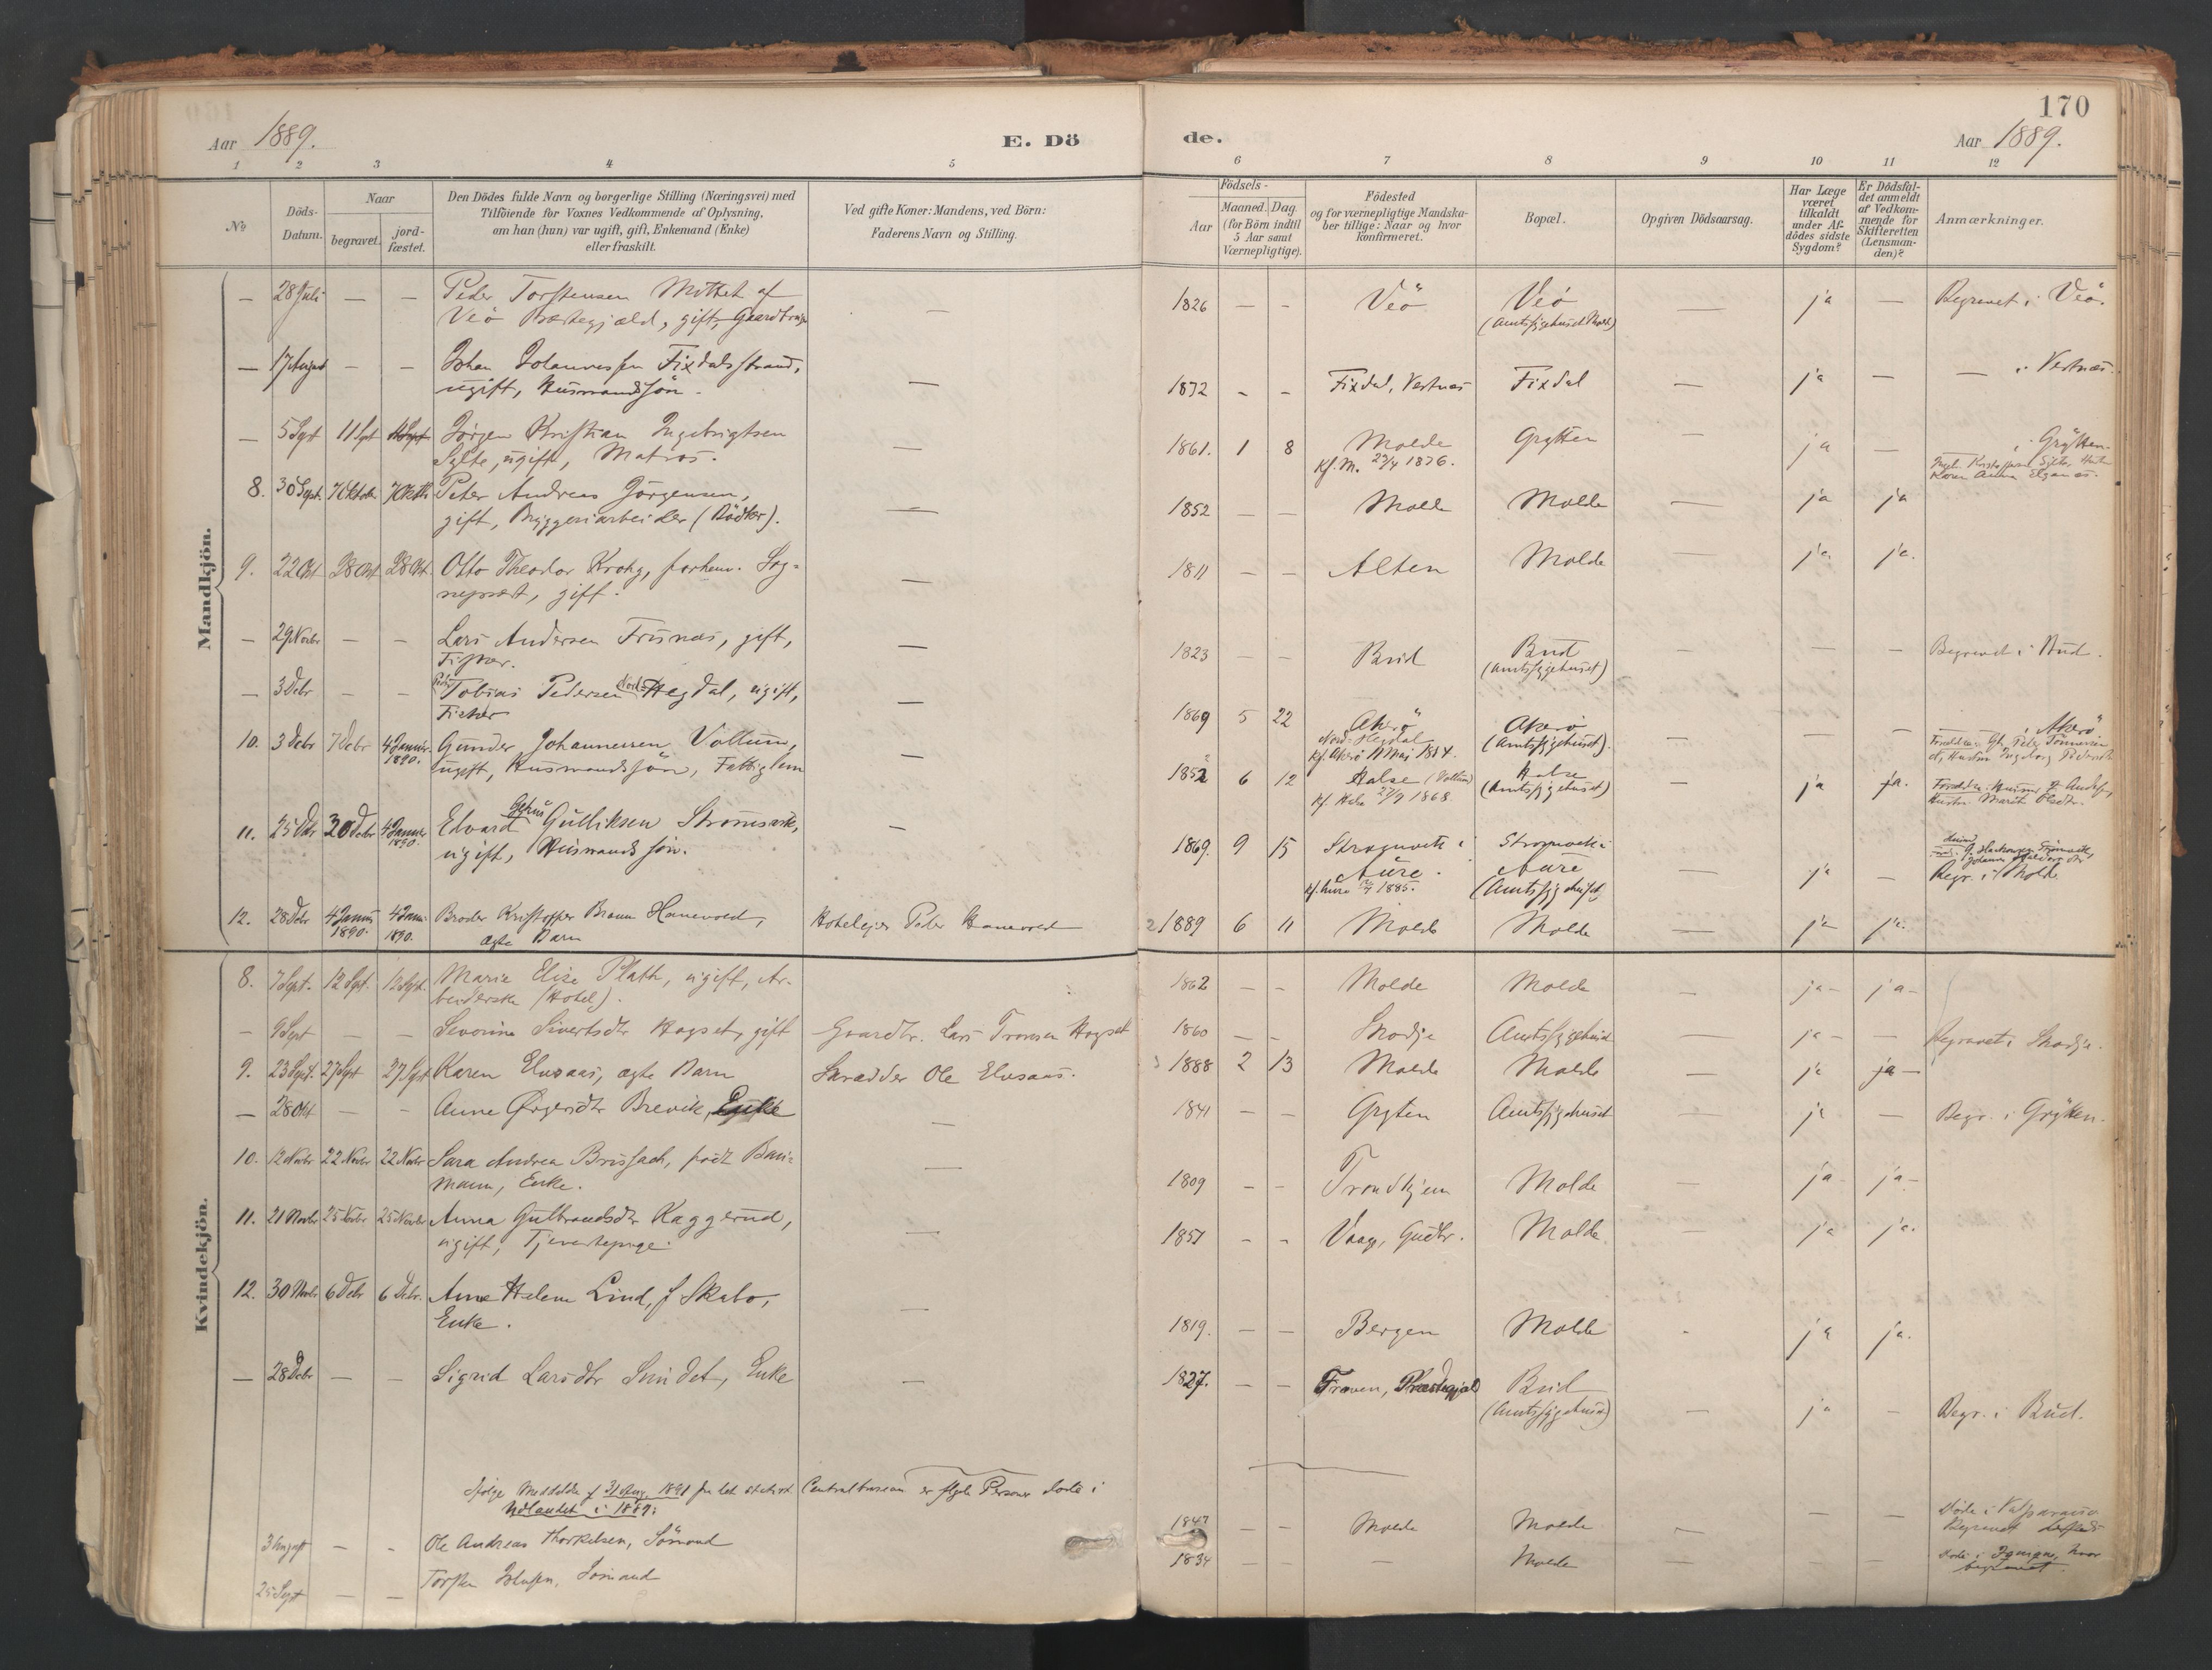 170
Aar 1889.
E. Döde.
Aar 1889.
1 2 3 4 5 6 7 8 9 10 11 12
No
Döds-Datum.
Naar
begravet.
jord-fæstet.
Den Dödes fulde Navn og borgerlige Stilling (Næringsvei) med
Tilföiende for Voxnes Vedkommende af Oplysning,
om han (hun) var ugift, gift, Enkemand (Enke)
eller fraskilt.
Ved gifte Koner: Mandens, ved Börn:
Faderens Navn og Stilling.
Födsels-
Aar
Maaned. Dag.
(for Börn indtil
5 Aar samt
Værnepligtige).
Födested
og for værnepligtige Mandska-
ber tillige: Naar og hvor
konfirmeret.
Bopæl.
Opgiven Dödsaarsag.
Har Læge
været
tilkaldt
under Af-
dödes sidste
Sygdom?
Er Dödsfal-
det anmeldt
af Vedkom-
mende for
Skifteretten
(Lensman-
den)?
Anmærkninger.
Mandkjön.
— 28 Juli — — Peder Torstensen Mittet af — 1826 — — Veö Veö — ja — Begravet i Veö.
Veö Præstegjæld, gift,
— 17 August — — Johan Johannessen Fixdalsstrand, — 1872 - - Fixdal, Vestnæs Fixdal — ja — — i Vestnæs.
ugift, Husmandssön.
— 5 Sept 11 Spt Jörgen Kristian Ingebrigtsen — 1861. 1 8 Molde Grytten — ja — i Grytten.
Sylte, ugift, Matros. Kf. M. 23/4 1876.
8. 30 Sept. 7 Oktober Peter Andreas Jörgensen, — 1852 — — Molde Molde — ja ja
gift, Bryggeriarbeider (Bödker).
9. 22 Okt 28 Okt 28 Okt. Otto Theodor Krohg, forhenv. Sog- — 1811 — — Alten Molde — ja. ja.
nepræst, gift.
— 29 Novbr — — Lars Andersen Trisnæs, gift, — 1823 — — Bud Bud — — — Begravet i Bud.
Fisker. (Amtssygehuset)
— 3 Debr - - Tobias Pedersen Nord-Hegdal, ugift, — 1869 5 22 Akerö Akerö — i Akerö
Fisker Nord-Hegdal (Amtssygehuset).
10. 3 Debr 7 Debr 4 Januar 1890. Gunder Johannessen Vollum, 1852 6 12 Halse (Vollum) Halse — ja ja.
ugift, Husmandssön, Fattiglem Kf. Halse 27/9 1868. (Amtssygehuset)
11. 25 Debr 30 Debr 4 Januar 1890. Edvard Gulliksen Strömsvik, — 1869. 9 15 ja —
ugift, Husmandssön. Aure. Aure Begr. i Molde
(Amtssygehuset)
12. 28 Debr 4 Januar 1890. 4 Janu. 1890. Broder Kristoffer Braun Hanevold, Hoteleier Peter Hanevold 1889 6 11 Molde Molde — ja ja.
ægte Barn
Kvindekjön.
8. 7 Sept. 12 Spt. 12 Spt. Marie Elise Plath, ugift, Ar- 1862 — — Molde Molde — ja- ja-
beiderske (Hotel).
— 9 Sept — — Severine Sivertsdtr Hagset, gift Gaardbr. Lars Tronsen Hagset 1860 — - Skodje Amtssygehuset — ja- — Begravet i Skodje.
9. 23 Sept. 27 Spt 27 Spt Karen Elvsaas, ægte Barn Skrædder Ole Elvsaas. 1888 2 13 Molde Molde — ja ja—
— 28 Okt — - Anne Brevik, Enke — 1841 — - Grytten Amtssygehuset — ja — Begr. i Grytten.
10. 12 Novbr 22 Novbr 22 Novbr Sara Andrea Brissach, födt Bau- — 1809 - - Trondhjem Molde — ja- ja-
mann, Enke.
11. 21 Novbr 25 Novbr 25 Novbr Anna Gulbrandsdtr Kaggerud, — 1851 — - Vaage, Gudbr. Molde. — ja ja.
ugift, Tjenestepige.
12. 30 Novbr 6 Debr 6 Debr. Anne Helene Lind, f. Skabo, — 1819. — — Bergen Molde - ja ja.
Enke.
— 28 Debr — — Sigrid Larsdtr Enke — 1827. — — Fræven, Præstegjæld Bud — ja — Begr. i Bud.
(Amtssygehuset)
Ifölge Meddelelse af 31 Aug. 1891 fra det statist. Centralbureau er flgde Personer döde i
Udlandet i 1889:
3 August — - Ole Andreas Thorkelsen, Sömand 1847 — — Molde Molde — — — Döde i Valparaiso
Begravet
25 Sept — — Torsten Sömand 1834 — — — Molde — — — Döde i hvor
begravet.